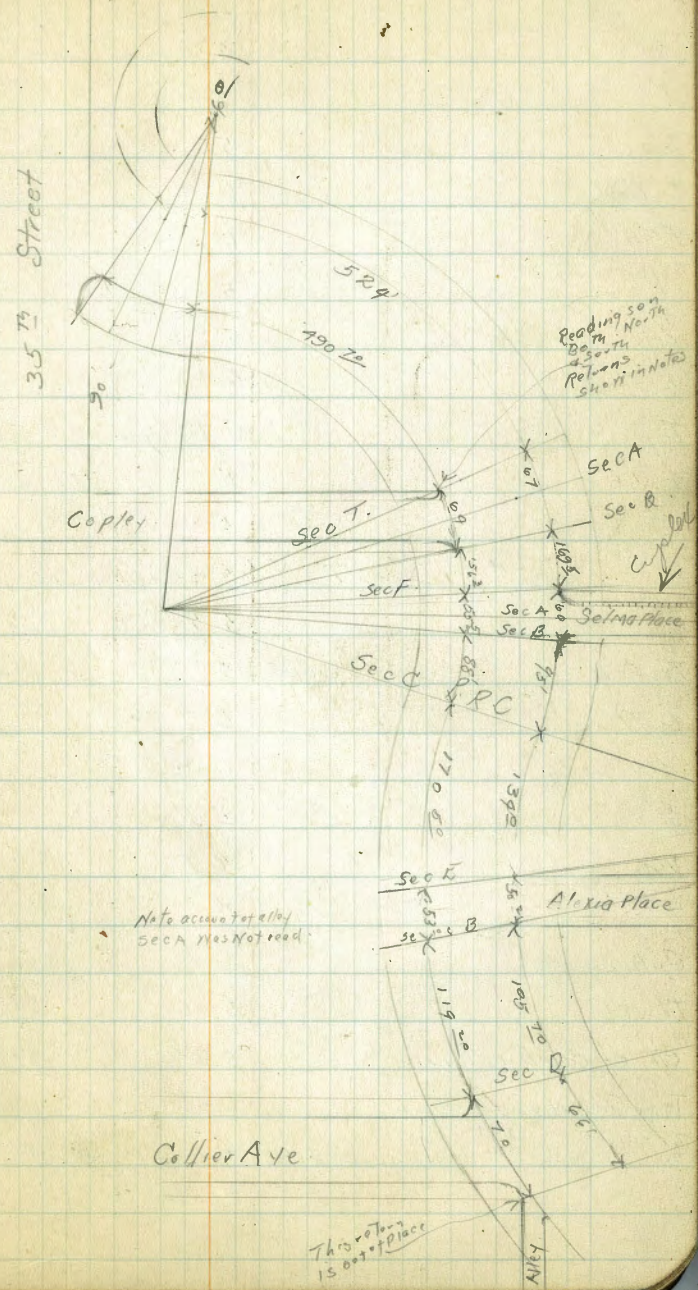 35 TH Street
524'
490 70
90
Readings on
Both North
& South
Returns
shown in Notes
67
Sec A
Copley
Sec T.
69
Sec B
Sec F
Sec A
60
Selma Place
Sec B
Sec C
P.C
95'
170 50
Sec E
Alexia Place
Note account of alley
Sec A Was Not read
Sec B
119 20
105 70
Sec D
70
Collier Ave
This return
is out of Place
Alley